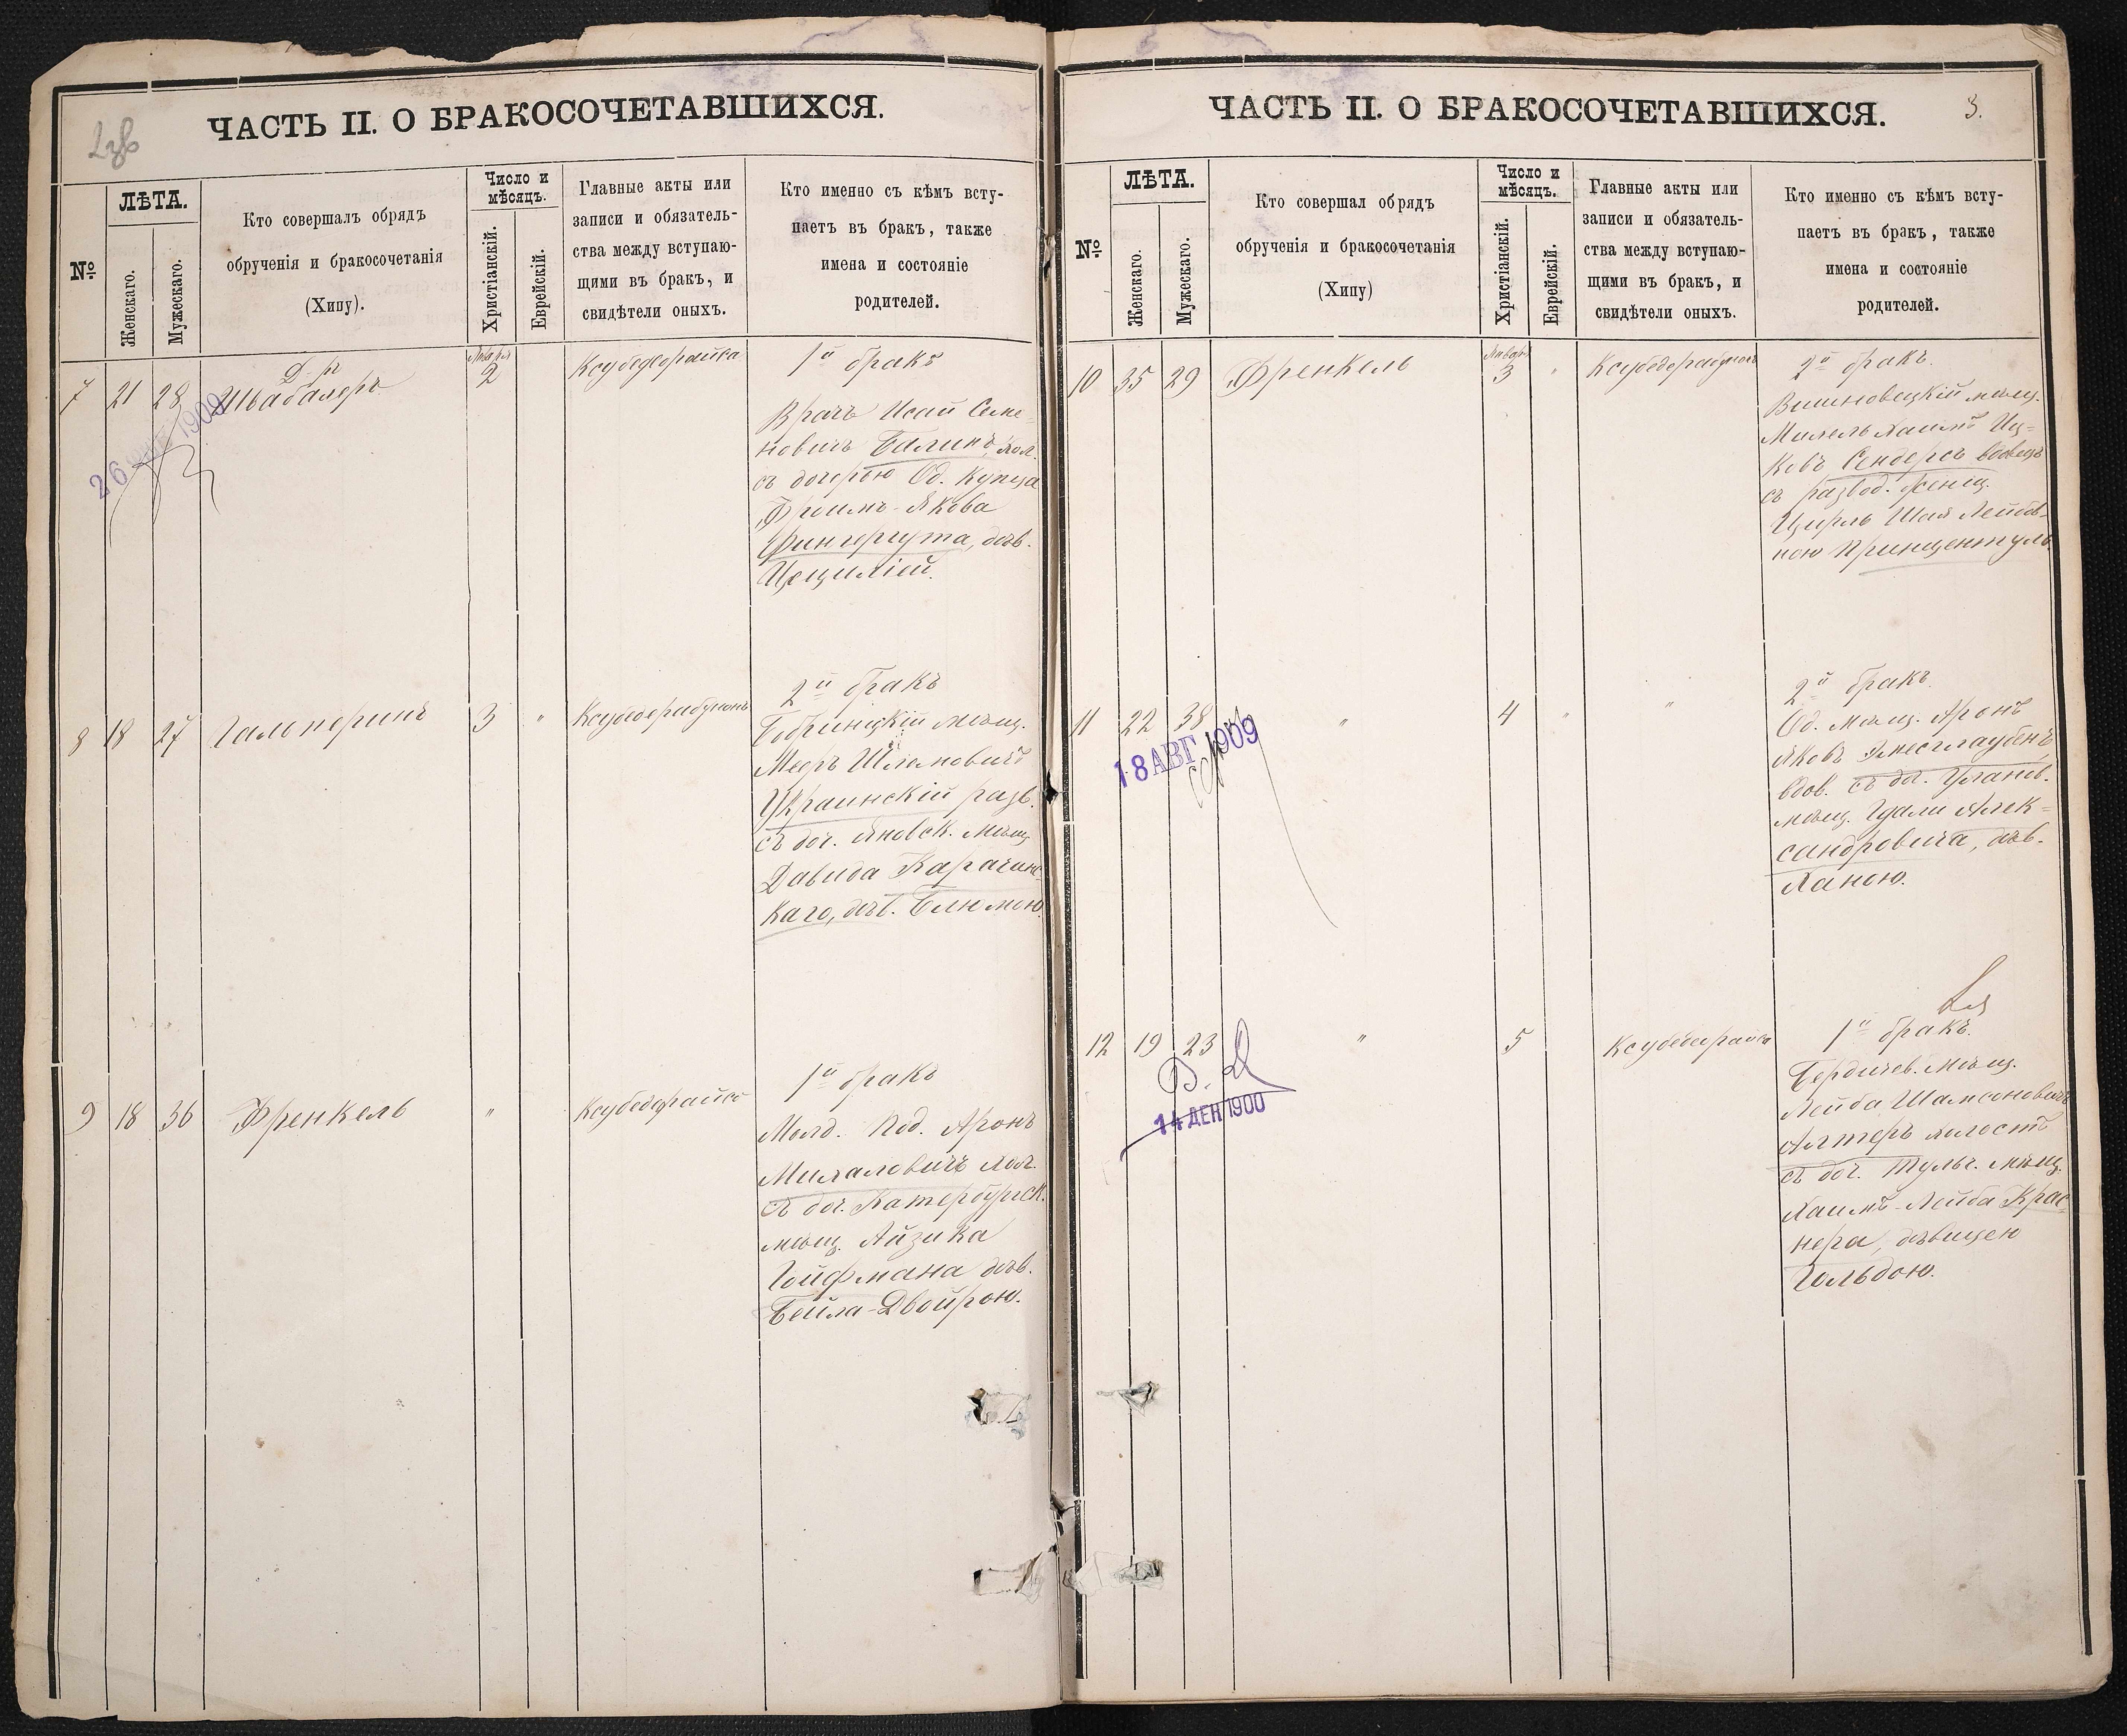 ЧАСТЬ II. О БРАКОСОЧЕТАВШИХСЯ.
№
ЛѢТА.
Женскаго.
Мужескаго.
Кто совершалъ обрядъ
обрученія и бракосочетанія
(Хипу).
Число и
мѣсяцъ.
Христіанскій.
Еврейскій.
Главные акты или
записи и обязатель-
ства между вступаю-
щими въ бракъ, и
свидѣтели оныхъ.
Кто именно съ кѣмъ всту-
паетъ въ бракъ, также
имена и состояніе
родителей.
7 21 28
Д-ръ
Швабахеръ
Января
2
1й бракъ
Врачъ Исай Семе-
новичъ Балинъ, хол.
съ дочерью Од. купца
Фроимъ-Якова
Фингергута, дѣв.
Цецилiей.
8 18 27 Гальперинъ 3 "
2й бракъ
Бобринецкій мѣщ.
Мееръ Шлемовичъ
Украинскій разв.
съ доч. Яновск. мѣщ.
Давида Карачинс-
каго, дѣв. Блюмою.
9 18 36 Френкель "
1й бракъ
Молд. под. Аронъ
Михаловичъ хол.
съ доч. Катербургск.
мѣщ. Айзика
Гойфмана дѣв.
Бейла-Двойрою.
ЧАСТЬ II. О БРАКОСОЧЕТАВШИХСЯ.
3.
№
ЛѢТА.
Женскаго.
Мужескаго.
Кто совершал обрядъ
обрученія и бракосочетанія
(Хипу)
Число и
мѣсяцъ.
Христіанскій.
Еврейскій.
Главные акты или
записи и обязатель-
ства между вступаю-
щими въ бракъ, и
свидѣтели оныхъ.
Кто именно съ кѣмъ всту-
паетъ въ бракъ, также
имена и состояніе
родителей.
10 35 29 Френкель
Января
3 "
2й бракъ.
Вишновецкій мѣщ.
Михель Хаимъ Иц-
ковъ Сендеръ вдовецъ
съ развод. женщ.
Цирль Шая Лейбов-
ною
11 22 38 " 4 " "
18 АВГ 1909
2й бракъ.
Од. мѣщ. Аронъ
Яковъ Эмесглаубенъ
вдов. съ доч. Улανов.
мѣщ. Гдали Алек-
сандровича, дѣв.
Ханою.
12 19 23 " 5
В. Д
14 ДЕН 1900
1й бракъ.
Бердичев. мѣщ.
Лейба Шамсоновичъ
Алтеръ холостъ
съ доч. Тульч. мѣщ.
Хаимъ-Лейба Крас-
нера, дѣвицею
Гольдою.